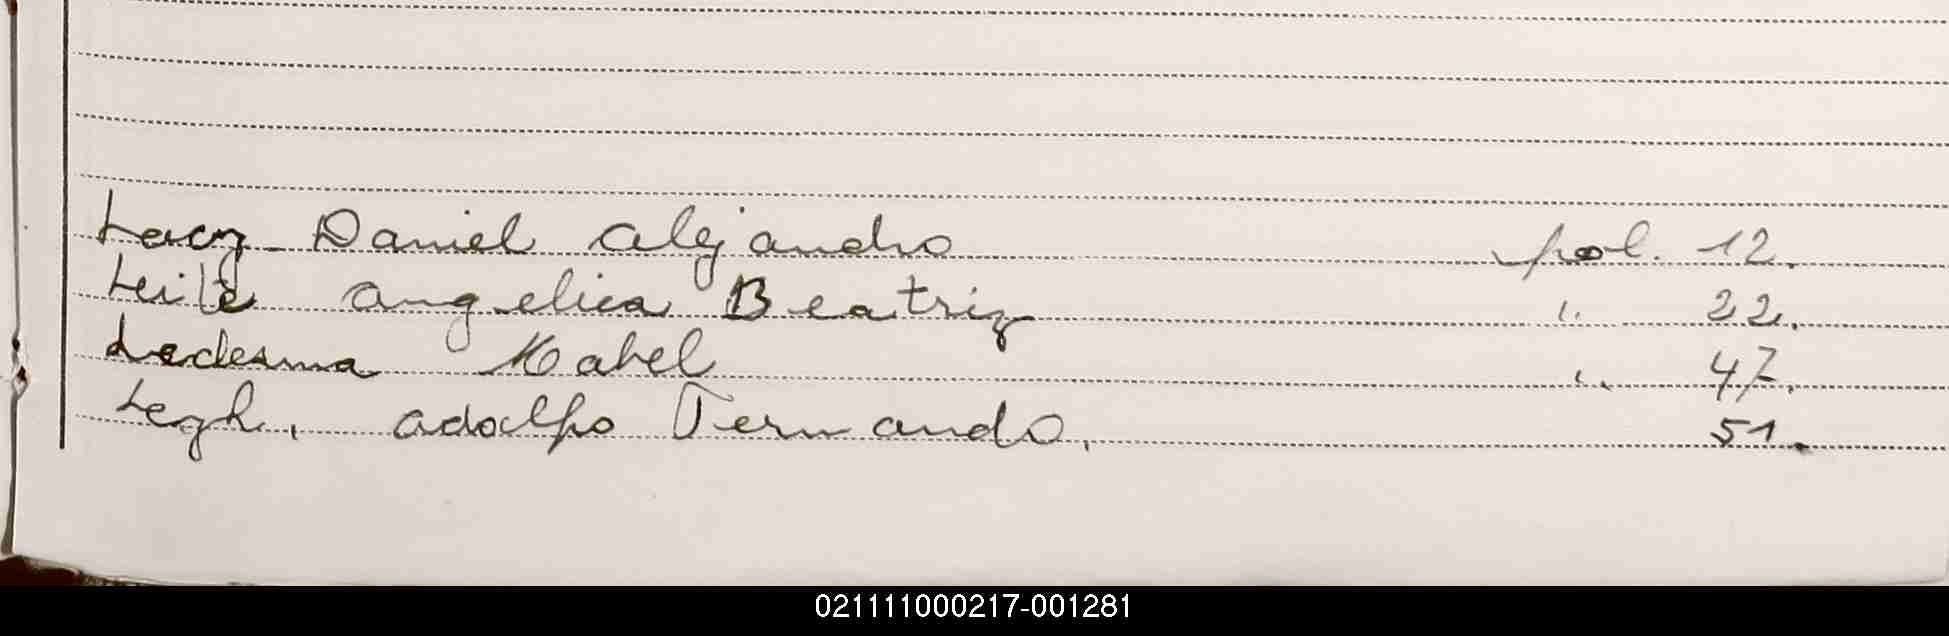 Lacoz Daniel Alejandro fol. 12.
Leite Angelica Beatriz " 22.
Ledesma Mabel " 47.
Legh, Adolfo Fernando. 51.
021111000217-001281